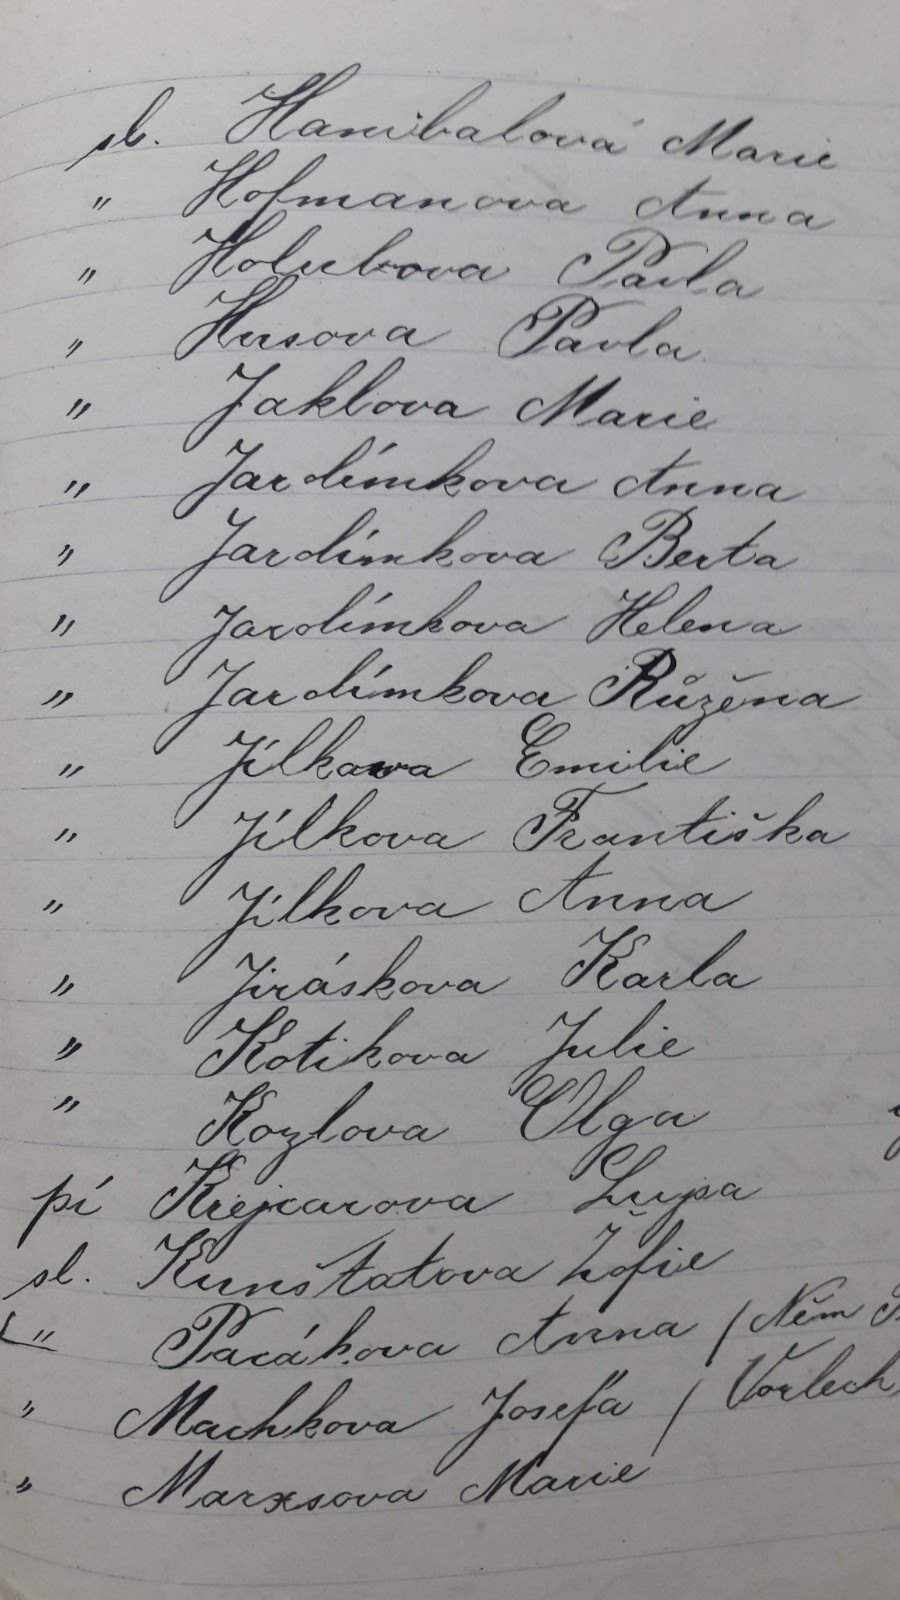 sl. Hanibalová Marie
" Hofmanova Anna
" Holubova Pavla
" Husova Pavla
" Jaklova Marie
" Jardímkova Anna
" Jardímkova Berta
" Jardímkova Helena
" Jardímkova Růžěna
" Jílkova Emilie
" Jílkova Františka
" Jílkova Anna
" Jiráskova Karla
" Kotikova Julie
" Kozlova Olga
pí Krejcarova Lujsa
sl. Kunštatova Žofie
" Pacákova Anna / Něm
" Machkova Josefa / Vorlech
" Marxsova Marie